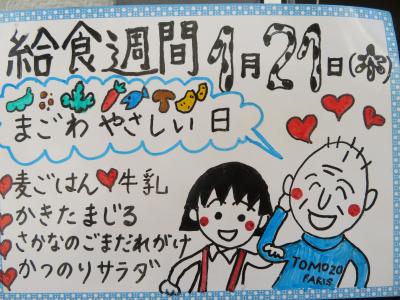 給食週間1月21日(水)
まごわやさしい日
麦ごはん♥牛乳
かきたまじる
さかなのごまだれがけ
かつのりサラダ
TOMOZO
PARIS